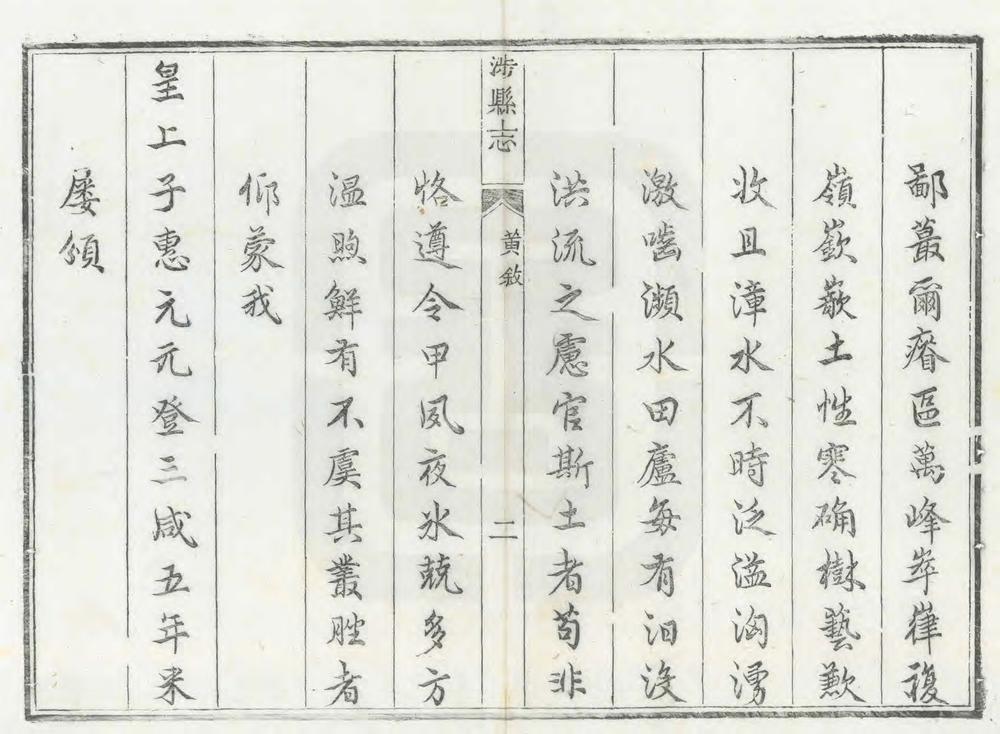 鄙蕞爾瘠區萬峰崒嵂複
嶺嶔嶔土性寒确樹藝歉
收且漳水不時泛溢洶湧
激嚙瀕水田廬每有汩没
洪流之慮官斯土者苟非
涉縣志
黄敘
二
恪遵令甲夙夜氷兢多方
温煦鮮有不虞其叢脞者
仰蒙我
皇上子惠元元登三咸五年來
屢頒